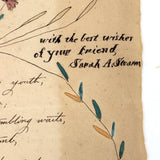 with the best wishes
of your friend,
Sarah A. Stearn
youth;
waits,